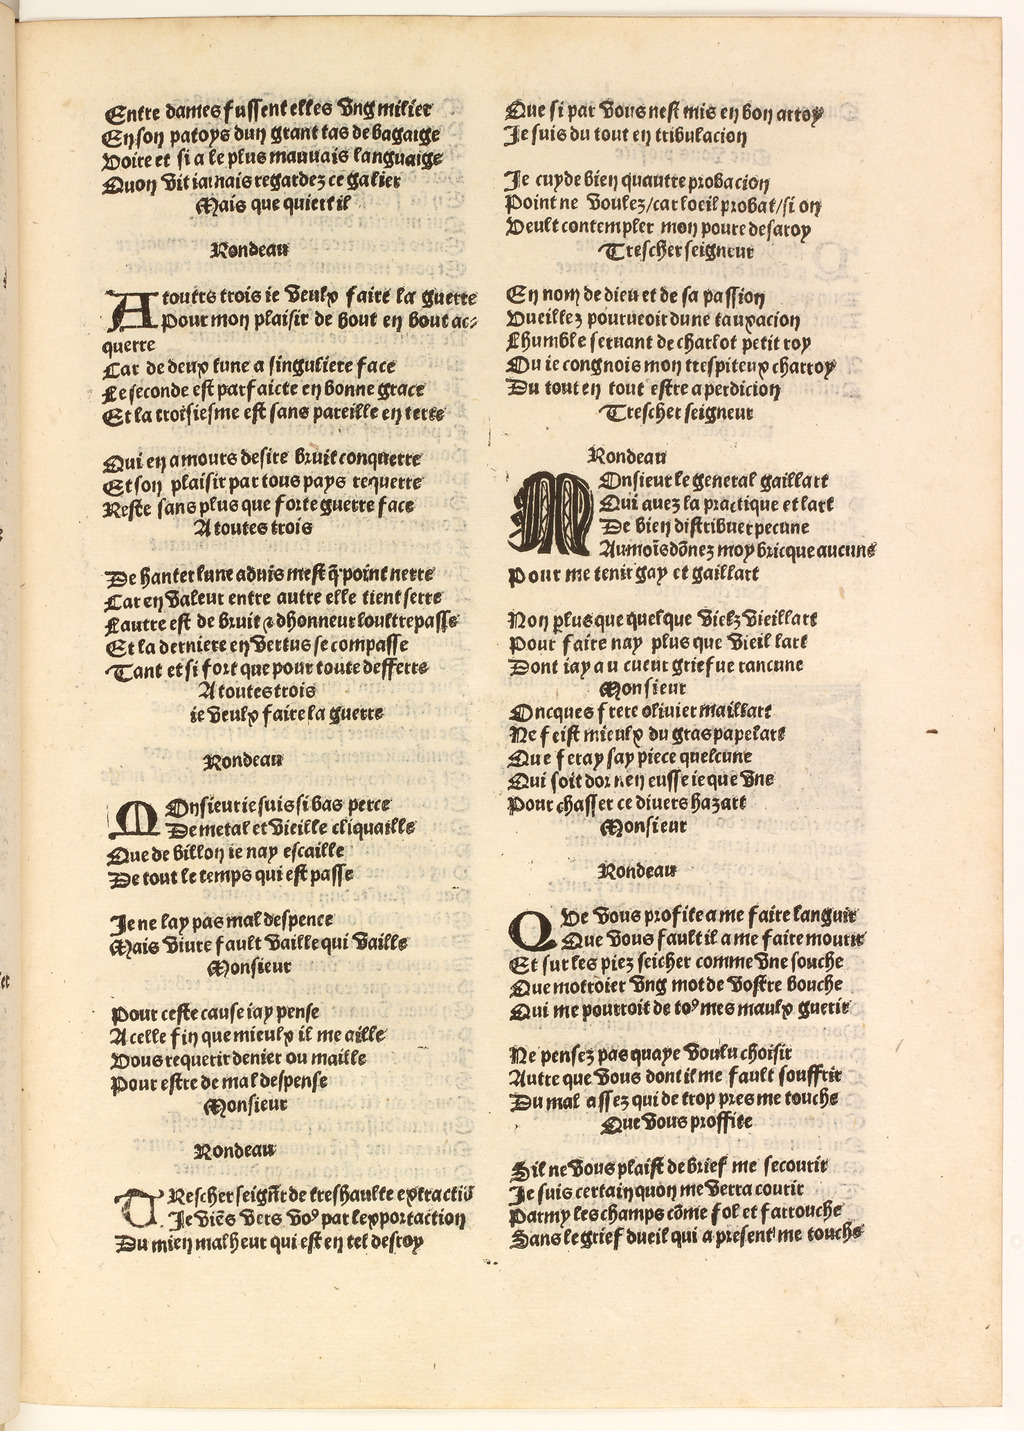 Entre dames fussent elles vng milier
En son patoys dun grant tas de bagaige
Voire et si a le plus mauuais languaige
Quon vit iamais regardez ce galier
Mais que quiert il
Rondeau
A toutes trois ie veulx faire la guerre
Pour mon plaisir de bout en bout ac-
querre
Car de deux lune a singuliere face
Le seconde est parfaicte en bonne grace
Et la troisiesme est sans pareille en terre
Qui en amours desire bruit conquerre
Et son plaisir par tous pays requerre
Reste sans plus que forte guerre face
A toutes trois
De hanter lune aduis mest q̄ point nerre
Car en valeur entre autre elle tient serre
Lautre est de bruit & dhonneur loultrepasse
Et la derniere en vertus se compasse
Tant et si fort que pour toute desserre
A toutes trois
ie veulx faire la guerre
Rondeau
MOnsieur ie suis si bas perce
De metal et vieille cliquaille
Que de billon ie nay escaille
De tout le temps qui est passe
Je ne lay pas mal despence
Mais viure fault vaille qui vaille
Monsieur
Pour ceste cause iay pense
A celle fin que mieulx il me aille
Vous requerir denier ou maille
Pour estre de mal despense
Monsieur
Rondeau
TRescher seigñr de treshaulte extractiō
Je viēs vers voꝰ par lexportaction
Du mien malheur qui est en tel desroy
Que si par vous nest mis en bon arroy
Je suis du tout en tribulacion
Je cuyde bien quautre probacion
Point ne voulez/car loeil probat/si on
Veult contempler mon poure desaroy
Trescher seigneur
En nom de dieu et de sa passion
Vueillez pourueoir dune tauxacion
Lhumble seruant de charlot petit roy
Ou ie congnois mon trespiteux charroy
Du tout en tout estre a perdicion
Trescher seigneur
Rondeau
MOnsieur le general gaillart
Qui auez la practique et lart
De bien distribuer pecune
Au moīs dōnez moy bricque aucune
Pour me tenir gay et gaillart
Non plus que quelque vielz vieillart
Pour faire nay plus que vieil lart
Dont iay au cueur griefue rancune
Monsieur
Oncques frere oliuier maillart
Ne feist mieulx du gras papelart
Que feray say piece quelcune
Qui soit dor nen eusse ie que vne
Pour chasser ce diuers hazart
Monsieur
Rondeau
QVe vous profite a me faire languir
Que vous fault il a me faire mourir
Et sur les piez seicher comme vne souche
Que motroier vng mot de vostre bouche
Qui me pourroit de toꝰ mes maulx guerir
Ne pensez pas quaye voulu choisir
Autre que vous dont il me fault souffrir
Du mal assez qui de trop pres me touche
Que vous proffite
Sil ne vous plaist de brief me secourir
Je suis certain quon me verra courir
Parmy les champs cōme fol et farrouche
Sans le grief dueil qui a present me touche